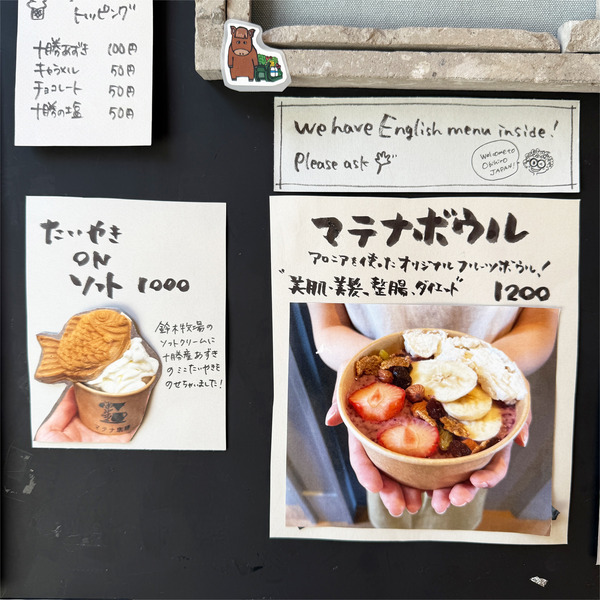 トッピング
十勝あずき 100円
キャラメル 50円
チョコレート 50円
十勝の塩 50円
We have English menu inside!
Please ask
Welcome to
Obihiro
JAPAN!
たいやき
ON
ソフト 1000
鈴木牧場の
ソフトクリームに
十勝産あずき
のミニたいやきを
のせちゃいました!
マテナ珈琲
マテナボウル
アロニアを使ったオリジナルフルーツボウル!
"美肌・美髪、整腸、ダイエット"
1200